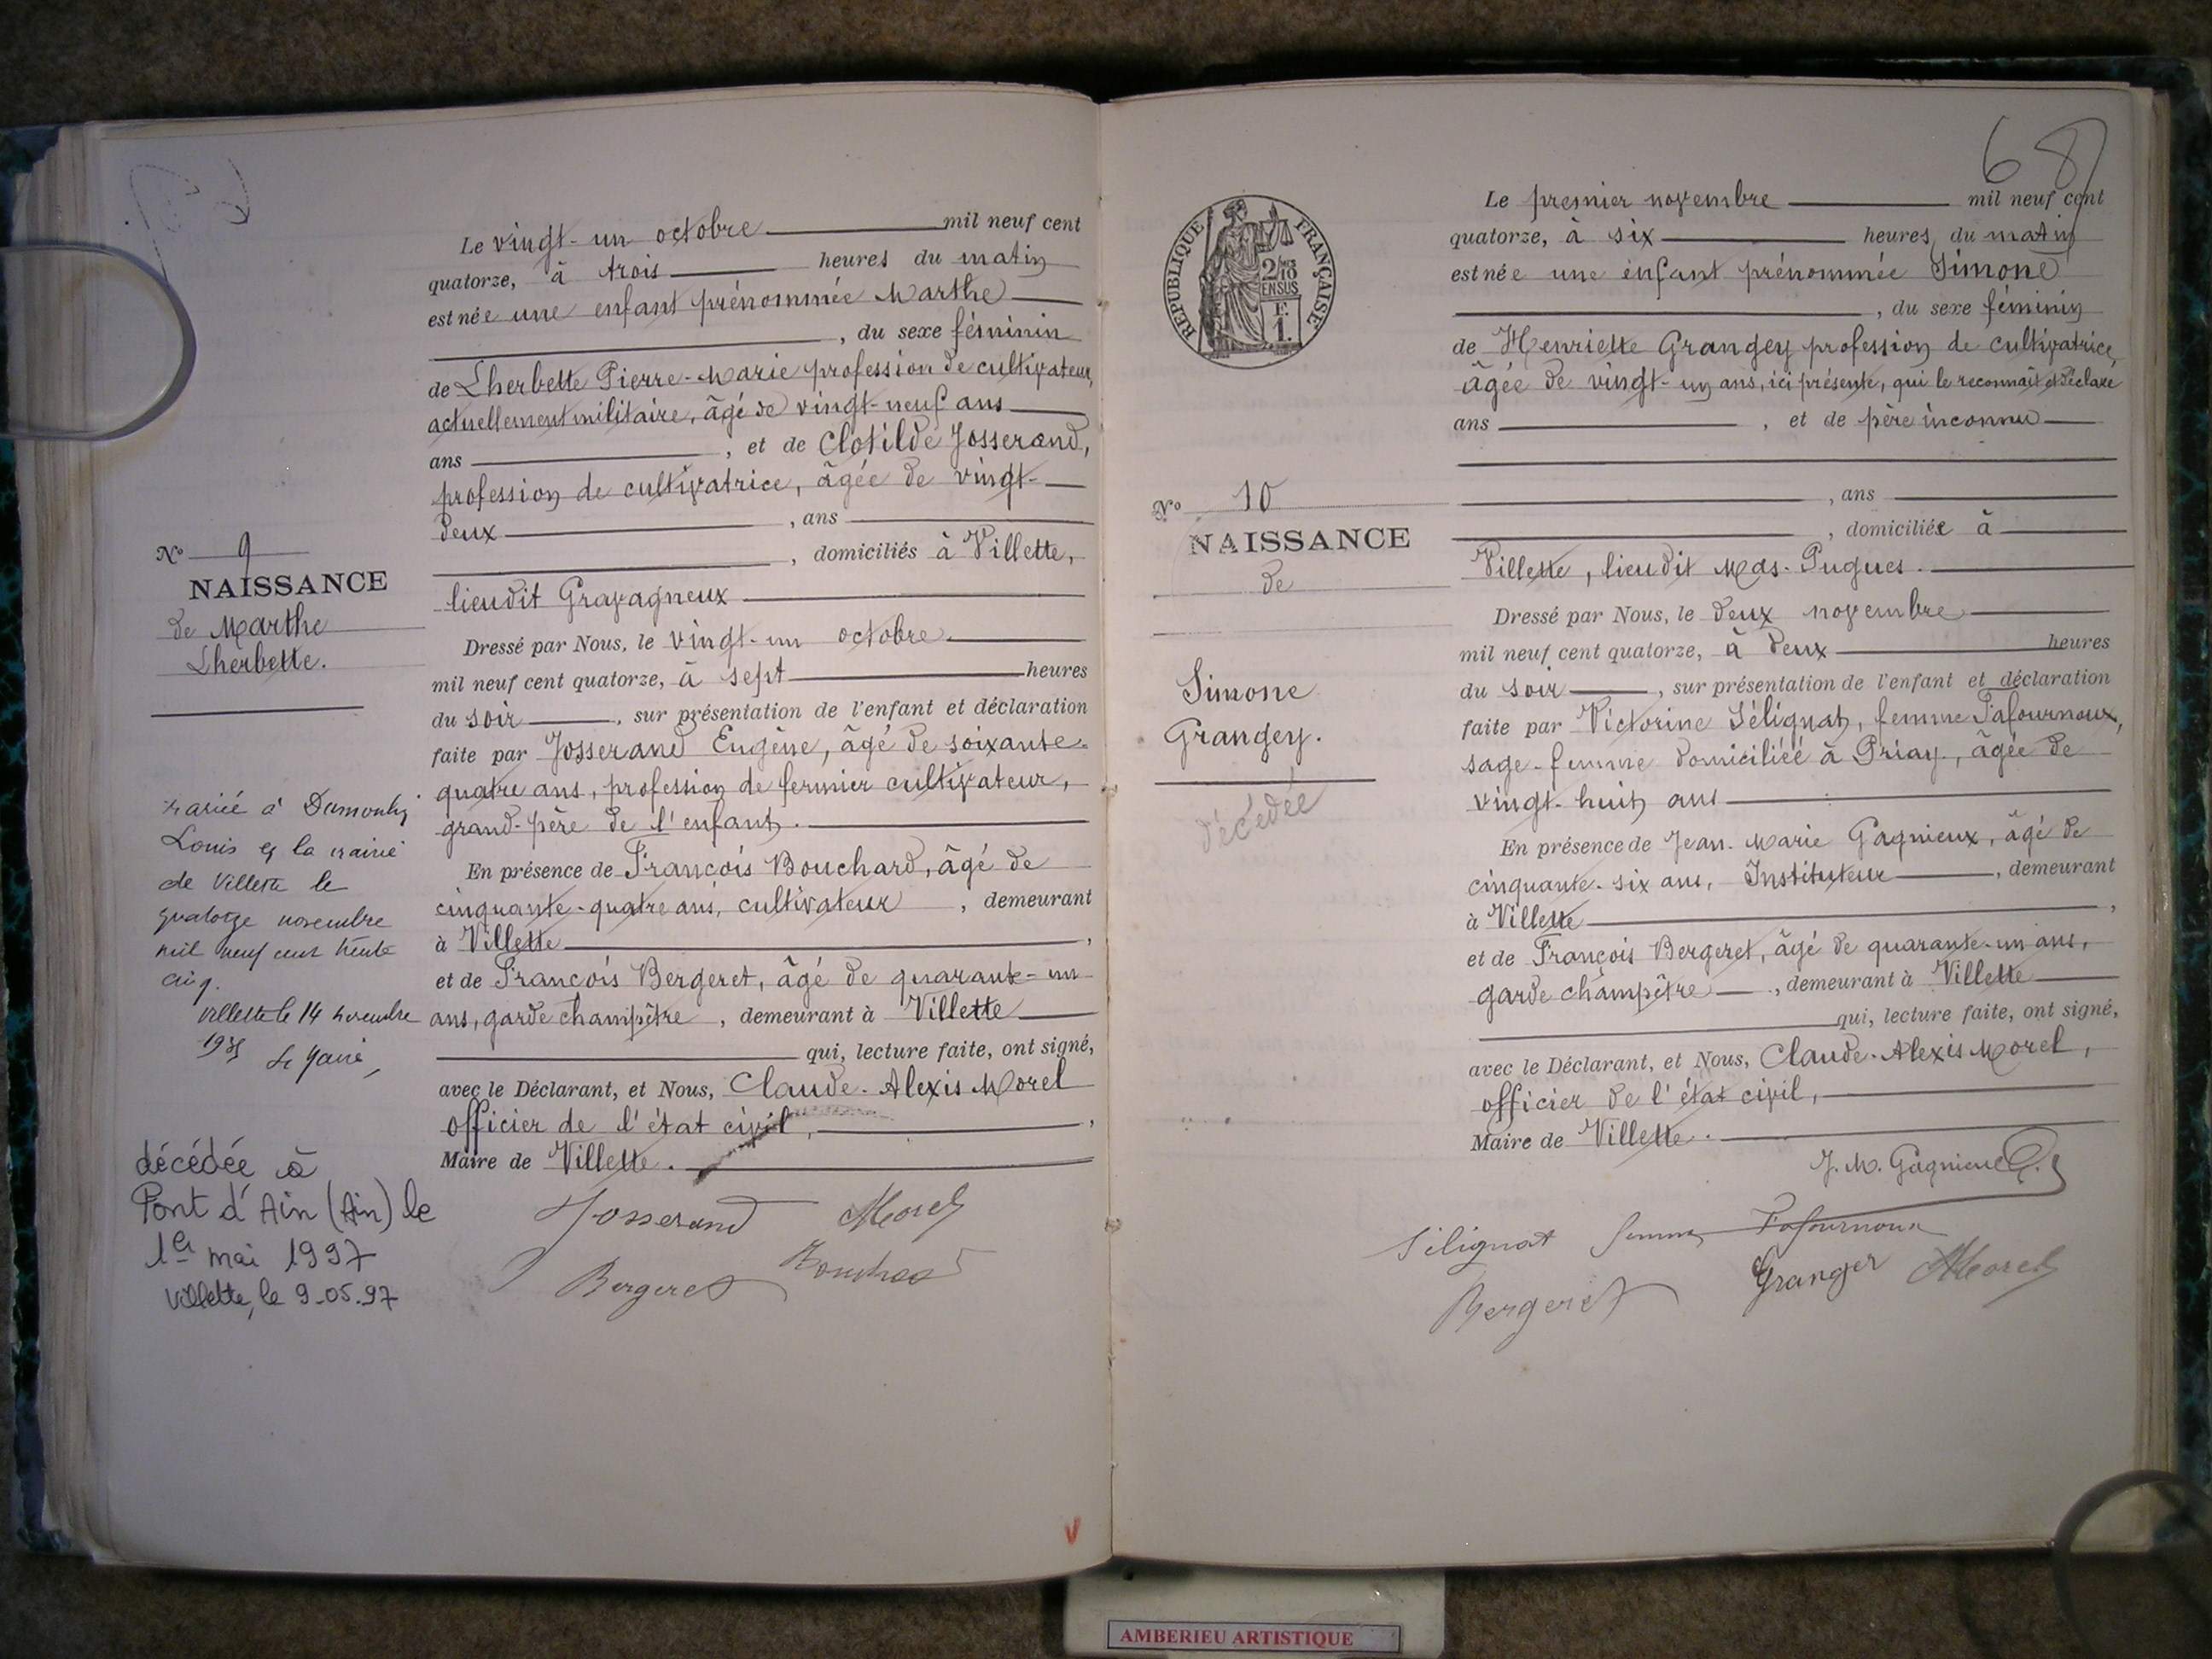 Le vingt-un octobre mil neuf cent
quatorze, à trois heures du matin
est née une enfant prénommée Marthe
, du sexe féminin
de Lherbette Pierre-Marie profession de cultivateur,
actuellement militaire, âgé de vingt-neuf ans
ans , et de Clotilde Josserand,
profession de cultivatrice, âgée de vingt-
deux , ans
, domiciliés à Villette,
lieudit Gravagneux
Dressé par Nous, le vingt-un octobre
mil neuf cent quatorze, à sept heures
du soir , sur présentation de l'enfant et déclaration
faite par Josserand Eugène, âgé de soixante-
quatre ans, profession de fermier cultivateur,
grand-père de l'enfant.
En présence de François Bouchard, âgé de
cinquante-quatre ans, cultivateur , demeurant
à Villette ,
et de François Bergeret, âgé de quarante-un
ans, garde champêtre , demeurant à Villette
qui, lecture faite, ont signé,
avec le Déclarant, et Nous, Claude-Alexis Morel
officier de l'état civil, ,
Maire de Villette.
Josserand Morel
Bergeret Bouchard
No 9
NAISSANCE
de Marthe
Lherbette.
mariée à
Louis à la mairie
de Villette le
quatorze novembre
mil neuf cent trente
cinq.
Villette le 14 novembre
1935 Le Maire,
décédée à
Pont d'Ain (Ain) le
1er mai 1997
Villette, le 9-05-97
V
68
REPUBLIQUE FRANÇAISE
2/10
EN SUS
F.
1.
Le premier novembre mil neuf cent
quatorze, à six heures du matin
est née une enfant prénommée Simone
, du sexe féminin
de Henriette Grangey profession de cultivatrice,
âgée de vingt-un ans, ici présente, qui le reconnaît et déclare
ans , et de père inconnu
, ans
, domiciliée à
Villette, lieudit Mas-Pugues.
Dressé par Nous, le deux novembre
mil neuf cent quatorze, à deux heures
du soir , sur présentation de l'enfant et déclaration
faite par Victorine Sélignat, femme Pafournoux,
sage-femme domiciliée à Priay, âgée de
vingt-huit ans
En présence de Jean-Marie Gagnieux, âgé de
cinquante-six ans, Instituteur , demeurant
à Villette ,
et de François Bergeret, âgé de quarante-un ans,
garde champêtre , demeurant à Villette
qui, lecture faite, ont signé,
avec le Déclarant, et Nous, Claude-Alexis Morel,
officier de l'état civil,
Maire de Villette.
J. M. Gagnieux
Sélignat femme Pafournoux
Bergeret Granger Morel
No 10
NAISSANCE
de
Simone
Grangey.
décédée
AMBERIEU ARTISTIQUE